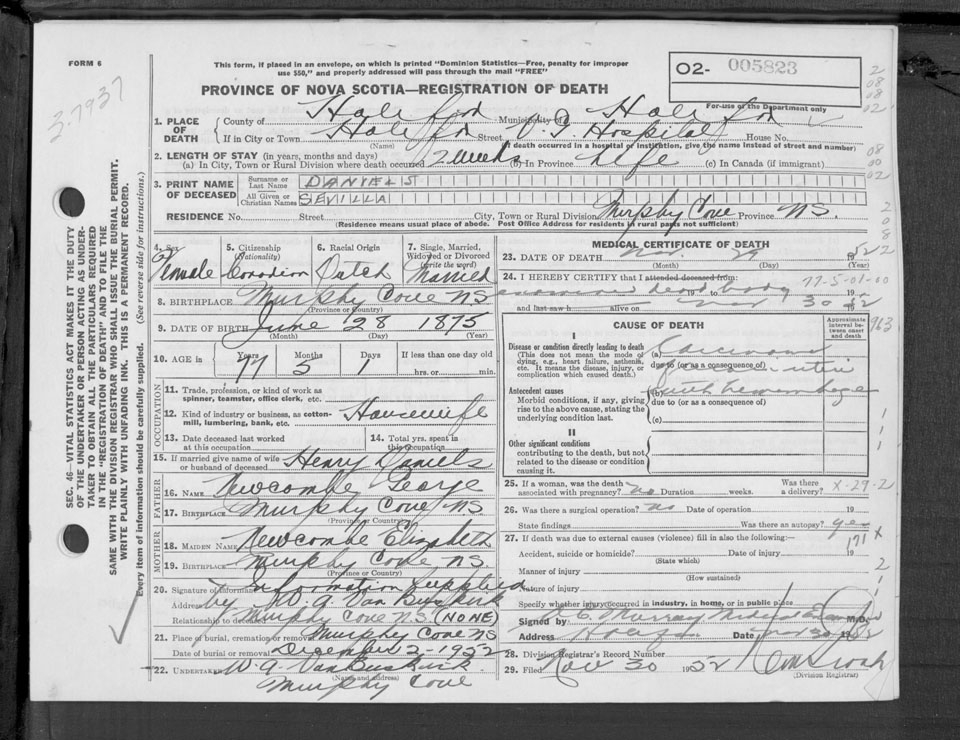 FORM 6
This form, if placed in an envelope, on which is printed "Dominion Statistics—Free, penalty for improper
use $50," and properly addressed will pass through the mail "FREE"
O2- 005823
For use of the Department only
37937
PROVINCE OF NOVA SCOTIA—REGISTRATION OF DEATH
1. PLACE OF DEATH
County of Halifax Municipality of Halifax
If in City or Town Halifax Street V. G. Hospital House No.
(Name) (If death occurred in a hospital or institution, give the name instead of street and number)
2. LENGTH OF STAY (in years, months and days)
(a) In City, Town or Rural Division where death occurred 2 weeks (b) In Province Life (c) In Canada (if immigrant)
3. PRINT NAME OF DECEASED
Surname or Last Name DANIELS
All Given or Christian Names SEVILLA
RESIDENCE No. Street City, Town or Rural Division Murphy Cove Province N.S.
(Residence means usual place of abode. Post Office Address for residents in rural parts not sufficient)
4. Sex Female
5. Citizenship (Nationality) Canadian
6. Racial Origin Dutch
7. Single, Married, Widowed or Divorced (write the word) Married
8. BIRTHPLACE Murphy Cove NS
(Province or Country)
9. DATE OF BIRTH June 28 1875
(Month) (Day) (Year)
10. AGE in Years 77 Months 5 Days 1 If less than one day old
hrs. or min.
OCCUPATION
11. Trade, profession, or kind of work as
spinner, teamster, office clerk, etc.
12. Kind of industry or business, as cotton-
mill, lumbering, bank, etc. Housewife
13. Date deceased last worked
at this occupation
14. Total yrs. spent in
this Occupation
15. If married give name of wife
or husband of deceased Henry Daniels
FATHER
16. NAME Newcombe George
17. BIRTHPLACE Murphy Cove N.S
(Province or Country)
MOTHER
18. MAIDEN NAME Newcombe Elizabeth
19. BIRTHPLACE Murphy Cove N.S.
(Province or Country)
20. Signature of informant Information Supplied
Address by W. A. Van Buskirk
Relationship to deceased Murphy Cove N.S. (NONE)
21. Place of burial, cremation or removal Murphy Cove NS
Date of burial or removal December 2-1952
22. UNDERTAKER W. A. Van Buskirk
Murphy Cove
MEDICAL CERTIFICATE OF DEATH
23. DATE OF DEATH Nov. 29 1952
(Month) (Day) (Year)
24. I HEREBY CERTIFY that I attended deceased from:
dead body 19 to 19
and last saw h alive on Nov 30 1952
77-5-01-00
CAUSE OF DEATH
Approximate interval between onset and death
Disease or condition directly leading to death
(This does not mean the mode of
dying, e.g., heart failure, asthenia,
etc. It means the disease, injury, or
complication which caused death.)
(a) Carcinoma
due to (or as a consequence of) uteri
Antecedent causes
Morbid conditions, if any, giving
rise to the above cause, stating the
underlying condition last.
(b) with hemorrhage
due to (or as a consequence of)
(c)
II
Other significant conditions
contributing to the death, but not
related to the disease or condition
causing it.
25. If a woman, was the death Was there
associated with pregnancy? no Duration weeks. a delivery?
X-29-2
26. Was there a surgical operation? no Date of operation 19
State findings Was there an autopsy? yes
27. If death was due to external causes (violence) fill in also the following:—
171 X
Accident, suicide or homicide? Date of injury 19
(State which)
Manner of injury
(How sustained)
Nature of injury
Specify whether injury occurred in industry, in home, or in public place
Signed by Murray Medical Examiner M.D.
Address Date Nov 30 1952
28. Division Registrar's Record Number
29. Filed Nov 30 1952
(Division Registrar)
SEC. 46—VITAL STATISTICS ACT MAKES IT THE DUTY
OF THE UNDERTAKER OR PERSON ACTING AS UNDER-
TAKER TO OBTAIN ALL THE PARTICULARS REQUIRED
IN THE "REGISTRATION OF DEATH" AND TO FILE THE
SAME WITH THE DIVISION REGISTRAR WHO SHALL ISSUE THE BURIAL PERMIT.
WRITE PLAINLY WITH UNFADING INK. THIS IS A PERMANENT RECORD.
Every item of information should be carefully supplied. (See reverse side for instructions.)